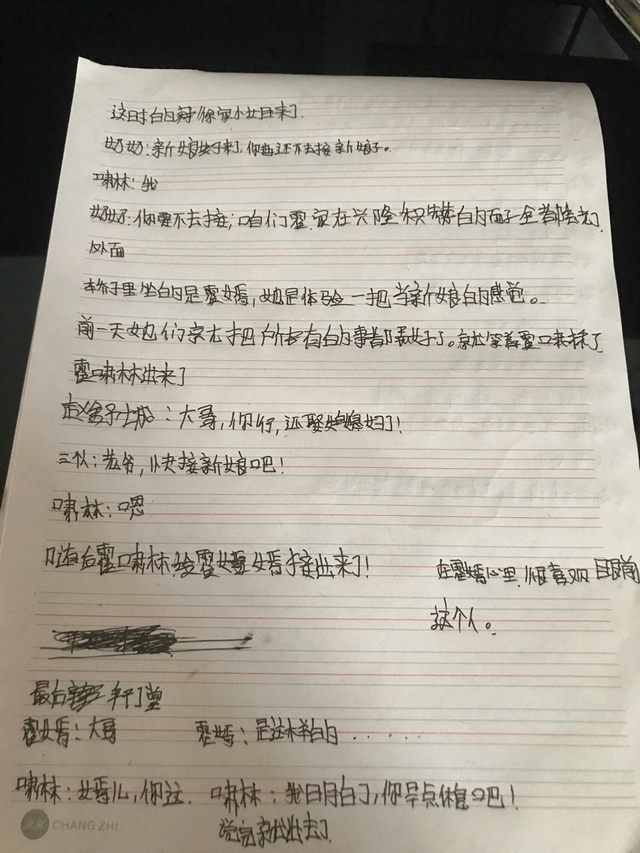 这时白舟你家小姐来了
奶奶:新娘好子来,你还不去接新娘子。
啸林:我
奶奶:你要不去接;咱们霍家在兴隆积攒的面子全都给丢了
外面
轿子里坐的是霍嫣,她是体验一把当新娘的感觉。
前一天她们就把所有的事都弄好了。就等着霍啸林了
霍啸林出来了
赵金城:大哥,你行,还娶媳妇了!
三:爷,快接新娘吧!
啸林:嗯
随后霍啸林给霍嫣嫣接出来了!
在霍嫣心里,很喜欢目眼前
这个人。
最后拜了堂
霍嫣:大哥 霍嫣:是这样的......
啸林:嫣儿,你这. 啸林:我明白了,你早点休息吧!
说完就出去了
CHANG ZHI